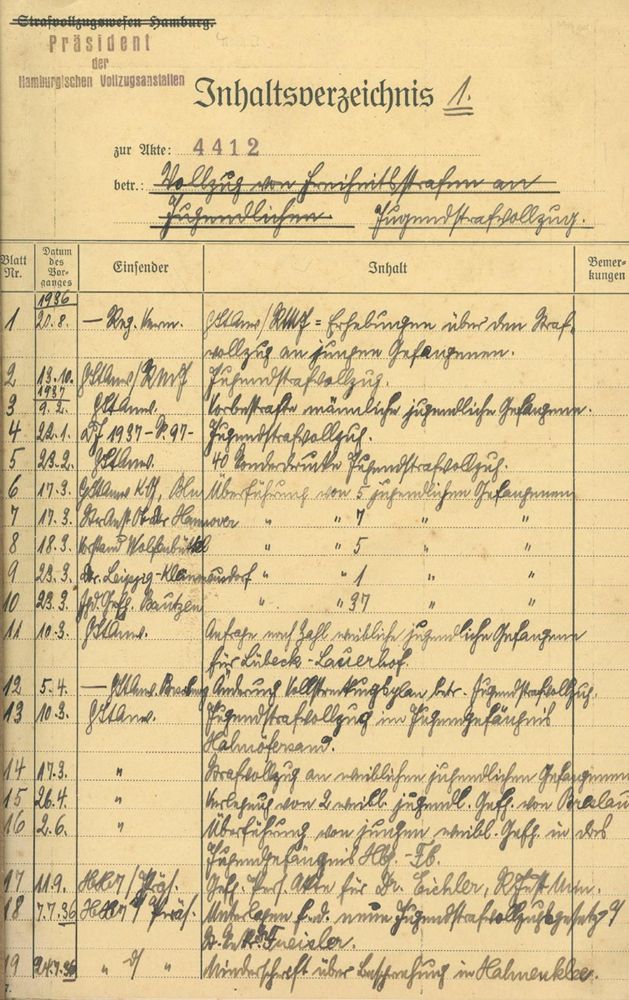 Strafvollzugswesen Hamburg.
Präsident
der
Hamburgischen Vollzugsanstalten
Inhaltsverzeichnis 1.
zur Akte: 4412
betr.: Vollzug von Freiheitsstrafen an
Jugendlichen. Jugendstrafvollzug.
Blatt Nr. Datum des Vorganges Einsender Inhalt Bemer-kungen
1936
1 20.8. — Reg. Verw. GStAnw/RMJ = Erhebungen über den Straf-
vollzug an jungen Gefangenen.
2 13.10. GStAnw/RMJ Jugendstrafvollzug.
1937
3 9.2. GStAnw. Vorbestrafte männliche jugendliche Gefangene.
4 22.1. DJ 1937 - S. 97 - Jugendstrafvollzug.
5 23.2. GStAnw. 40 Sonderdrucke Jugendstrafvollzug.
6 17.3. GStAnw KG, Bln Überführung von 5 jugendlichen Gefangenen
7 17.3. Hannover " " 7 " "
8 18.3. Vorstand Wolfenbüttel " " 5 " "
9 23.3. Leipzig-Kleinmeusdorf " " 1 " "
10 23.3. Jgd. Gefg. Bautzen " " 37 " "
11 10.3. GStAnw. Anfrage nach Zahl weibliche jugendliche Gefangene
für Lübeck-Lauerhof.
12 5.4. — GStAnw. Vollstreckungsplan betr. Jugendstrafvollzug.
13 10.3. GStAnw. Jugendstrafvollzug im Jugendgefängnis
Hahnöfersand.
14 17.3. " Strafvollzug an weiblichen jugendlichen Gefangenen
15 26.4. " Verlegung von 2 weibl. jugendl. Gefg. von Breslau
16 2.6. " Überführung von jungen weibl. Gefg. in das
Jugendgefängnis Hbg.-Fb.
17 11.9. / Präs. Gefg. Pers. Akte für Dr. Eichler, R Just Min.
18 7.7.36 / Präs. Unterlagen f. d. neue Jugendstrafvollzugsgesetz
Freisler.
19 24.7.36 " " Niederschrift über Besprechung in Hahnenklee.